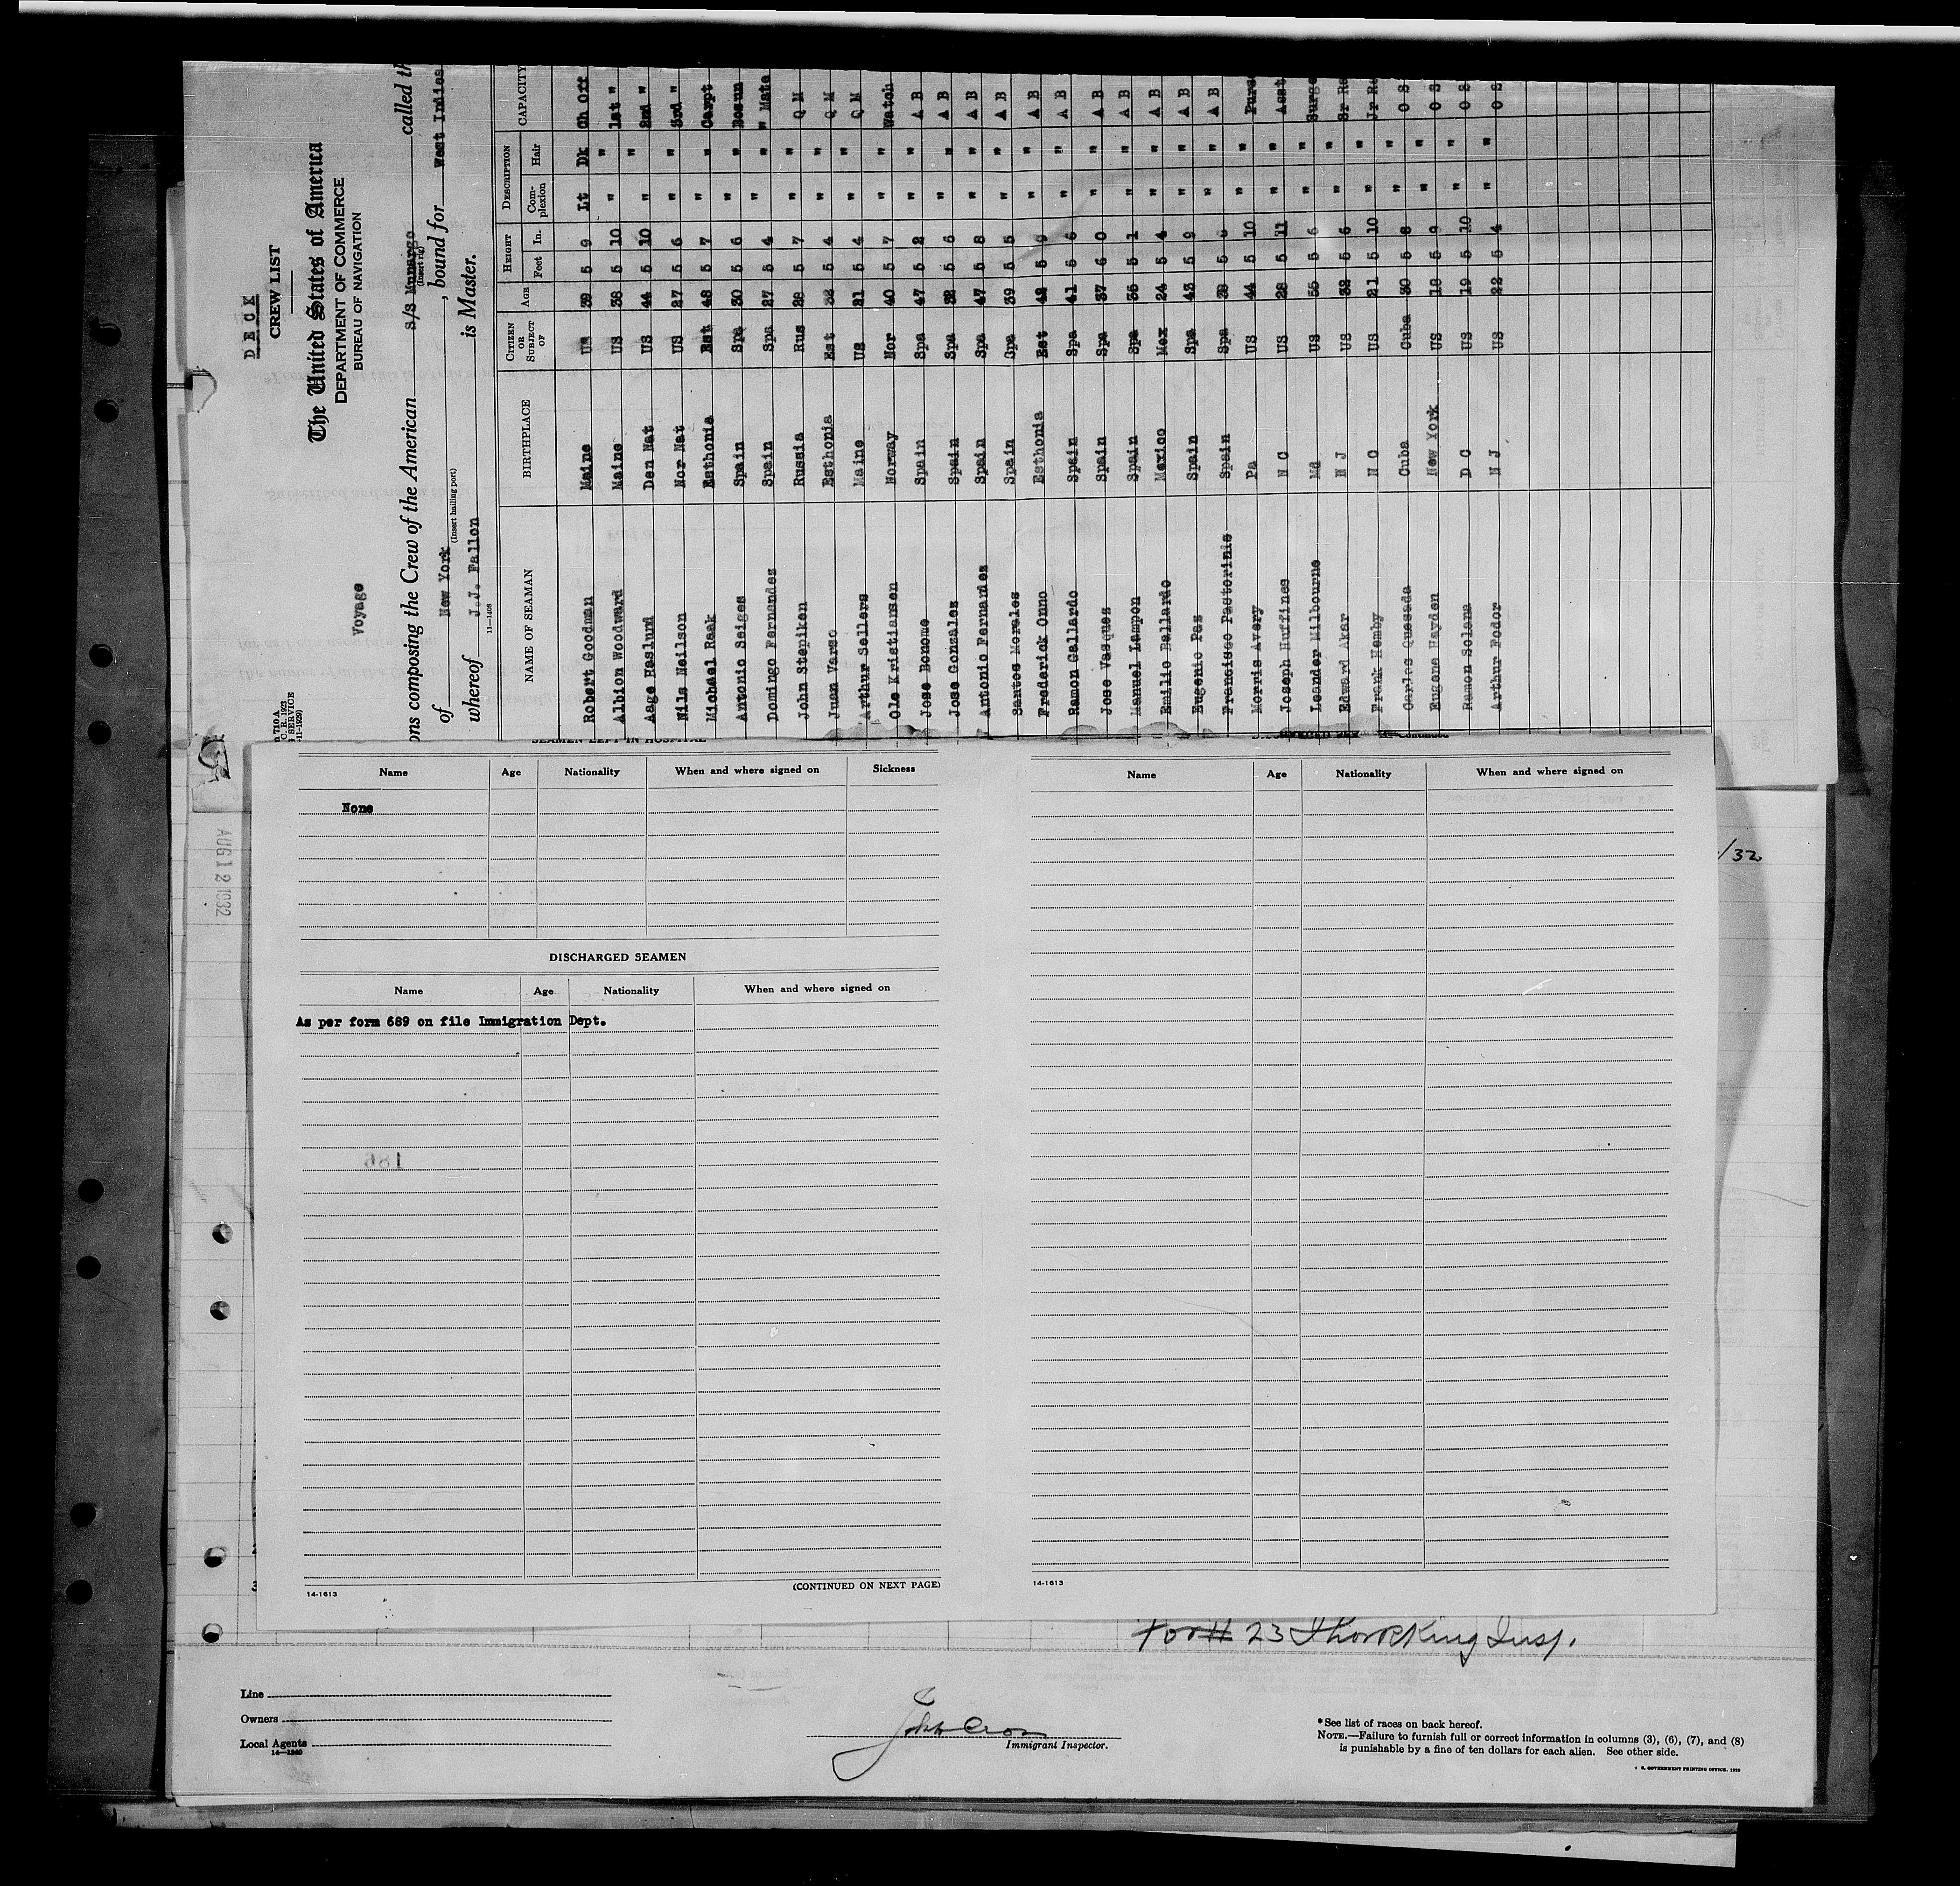 DECK
CREW LIST
The United States of America
DEPARTMENT OF COMMERCE
BUREAU OF NAVIGATION
Voyage
ons composing the Crew of the American s/s Munargo called th
(Insert rig)
of New York, bound for West Indies
(Insert hailing port)
whereof J.J. Fallon is Master.
11—1408
NAME OF SEAMAN BIRTHPLACE CITIZEN OR SUBJECT OF AGE HEIGHT Feet In. DESCRIPTION Complexion Hair CAPACITY
Robert Goodman Maine US 39 5 9 Lt Dk Ch Off
Albion Woodward Maine US 38 5 10 " " 1st "
Aage Haslund Den Nat US 44 5 10 " " 2nd "
Nils Neilson Nor Nat US 27 5 6 " " 3rd "
Michael Raak Esthonia Est 48 5 7 " " Carpt
Antonio Seiges Spain Spa 30 5 6 " " Bosun
Domingo Fernandez Spain Spa 27 5 4 " " " Mate
John Stepiken Russia Rus 28 5 7 " " Q M
Juan Varso Esthonia Est 5 4 " " Q M
Arthur Sellers Maine US 21 5 4 " " Q M
Ole Kristiansen Norway Nor 40 5 7 " " Watch
Jose Bonome Spain Spa 47 5 2 " " A B
Jose Gonzales Spain Spa 32 5 6 " " A B
Antonio Fernandez Spain Spa 47 5 8 " " A B
Santos Morales Spain Spa 39 5 5 " " A B
Frederick Onno Esthonia Est 42 5 9 " " A B
Ramon Gallardo Spain Spa 41 5 6 " " A B
Jose Vasquez Spain Spa 37 6 0 " " A B
Manuel Lampon Spain Spa 35 5 1 " " A B
Emilio Ballardo Mexico Mex 24 5 4 " " A B
Eugenio Paz Spain Spa 43 5 9 " " A B
Francisco Pastorinis Spain Spa 5 " " A B
Morris Avery Pa US 44 5 10 " " Purs
Joseph Huffines N C US 28 5 11 " " Asst
Leander Milbourne Md US 55 5 6 " " Surge
Edward Aker N J US 32 5 6 " " Sr Ra
Frank Hemby N C US 21 5 10 " " Jr Ra
Carlos Quesada Cuba Cuba 30 5 8 " " O S
Eugene Hayden New York US 19 5 9 " " O S
Ramon Solana D C US 19 5 10 " " O S
Arthur Fodor N J US 22 5 4 " " O S
SEAMEN LEFT IN HOSPITAL
Name Age Nationality When and where signed on Sickness
None
DISCHARGED SEAMEN
Name Age Nationality When and where signed on
As per form 689 on file Immigration Dept.
186
14-1613
(CONTINUED ON NEXT PAGE)
Name Age Nationality When and where signed on
14-1613
AUG 12 1932
/32
23 Insp.
Line
Owners
Local Agents
14—1240
Immigrant Inspector.
* See list of races on back hereof.
NOTE.—Failure to furnish full or correct information in columns (3), (6), (7), and (8)
is punishable by a fine of ten dollars for each alien. See other side.